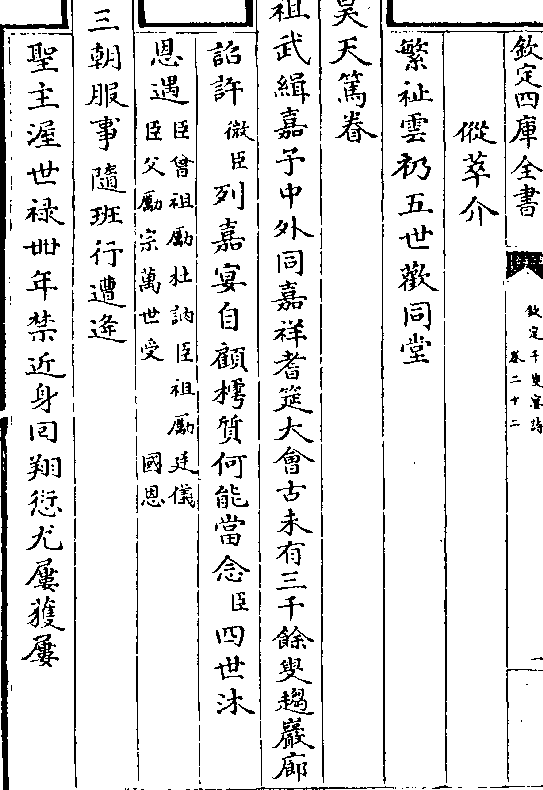 欽定四庫全書
欽定千叟宴詩
卷二十二
二
從萃介
繁祉雲礽五世歡同堂
昊天篤眷
祖武緝嘉予中外同嘉祥耆筵大會古未有三千餘叟趨巖廊
詔許微臣列嘉宴自顧樗質何能當念臣四世沐
恩遇臣曾祖勵杜訥臣祖勵廷儀
臣父勵宗萬世受 國恩
三朝服事隨班行遭逢
聖主渥世祿卌年禁近身回翔愆尤屢獲屢